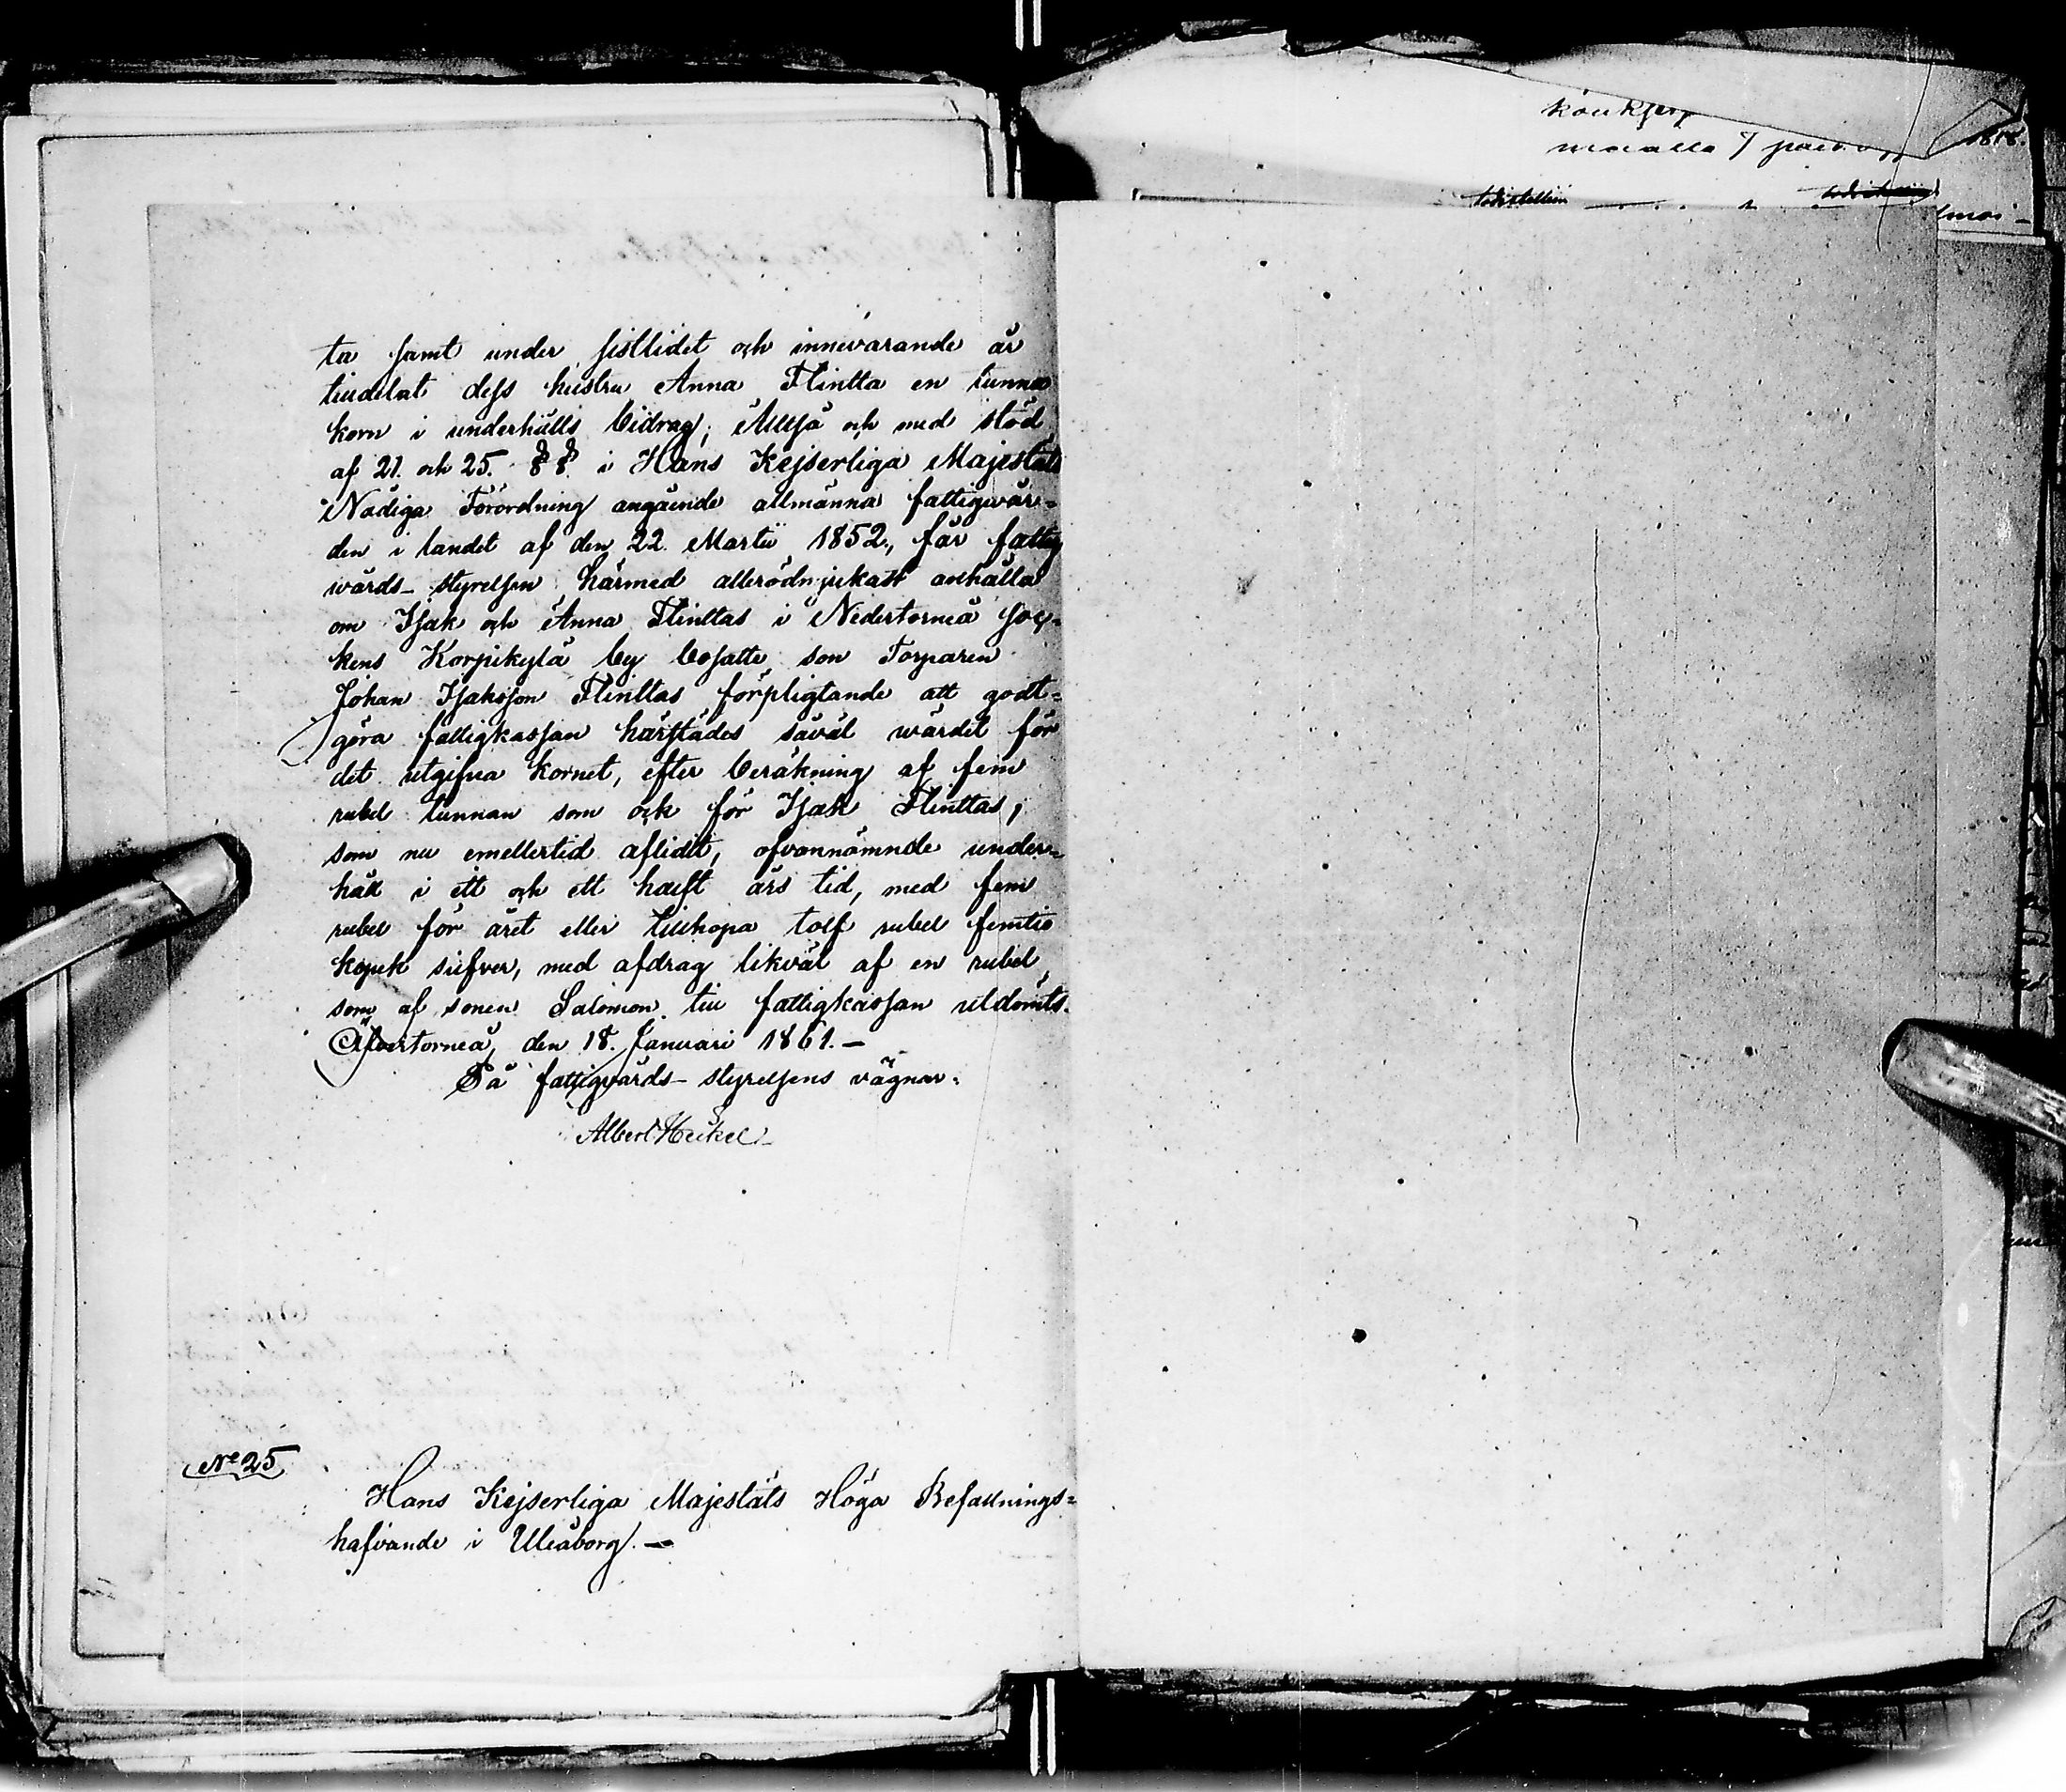 ta samt under sistlidet och innevarande år
tilldelat dess hustru Anna Flintta en tunna
korn i underhålls bidrag; Alltså och med stöd
af 21. och 25. §§. i Hans Kejserliga Majestäts
Nådiga Förordning angående allmänna fattigvår-
den i landet af den 22. Martii 1852., får fattig
wårds-styrelsen härmed allerödmjukast anhålla
om Isak och Anna Flinttas i Nedertorneå soc-
kens Korpikylä by bosatte son Torparen
Johan Isaksson Flinttas förpligtande att godt-
göra fattigkassan härstädes såväl wärdet för
det utgifna kornet, efter beräkning af fem
rubel tunnan som ock för Isak Flinttas,
som nu emellertid aflidit, ofvannämnde under-
håll i ett och ett halft års tid, med fem
rubel för året eller tillhopa tolf rubel femtio
kopek silfver, med afdrag likväl af en rubel,
som af sonen Salomon till fattigkassan utdömts.
Öfvertorneå, den 18. Januari 1861.—
På fattigvårds-styrelsens vägnar:
Albert Heikel
No 25
Hans Kejserliga Majestäts Höga Befallnings-
hafvande i Uleåborg.—
1818.